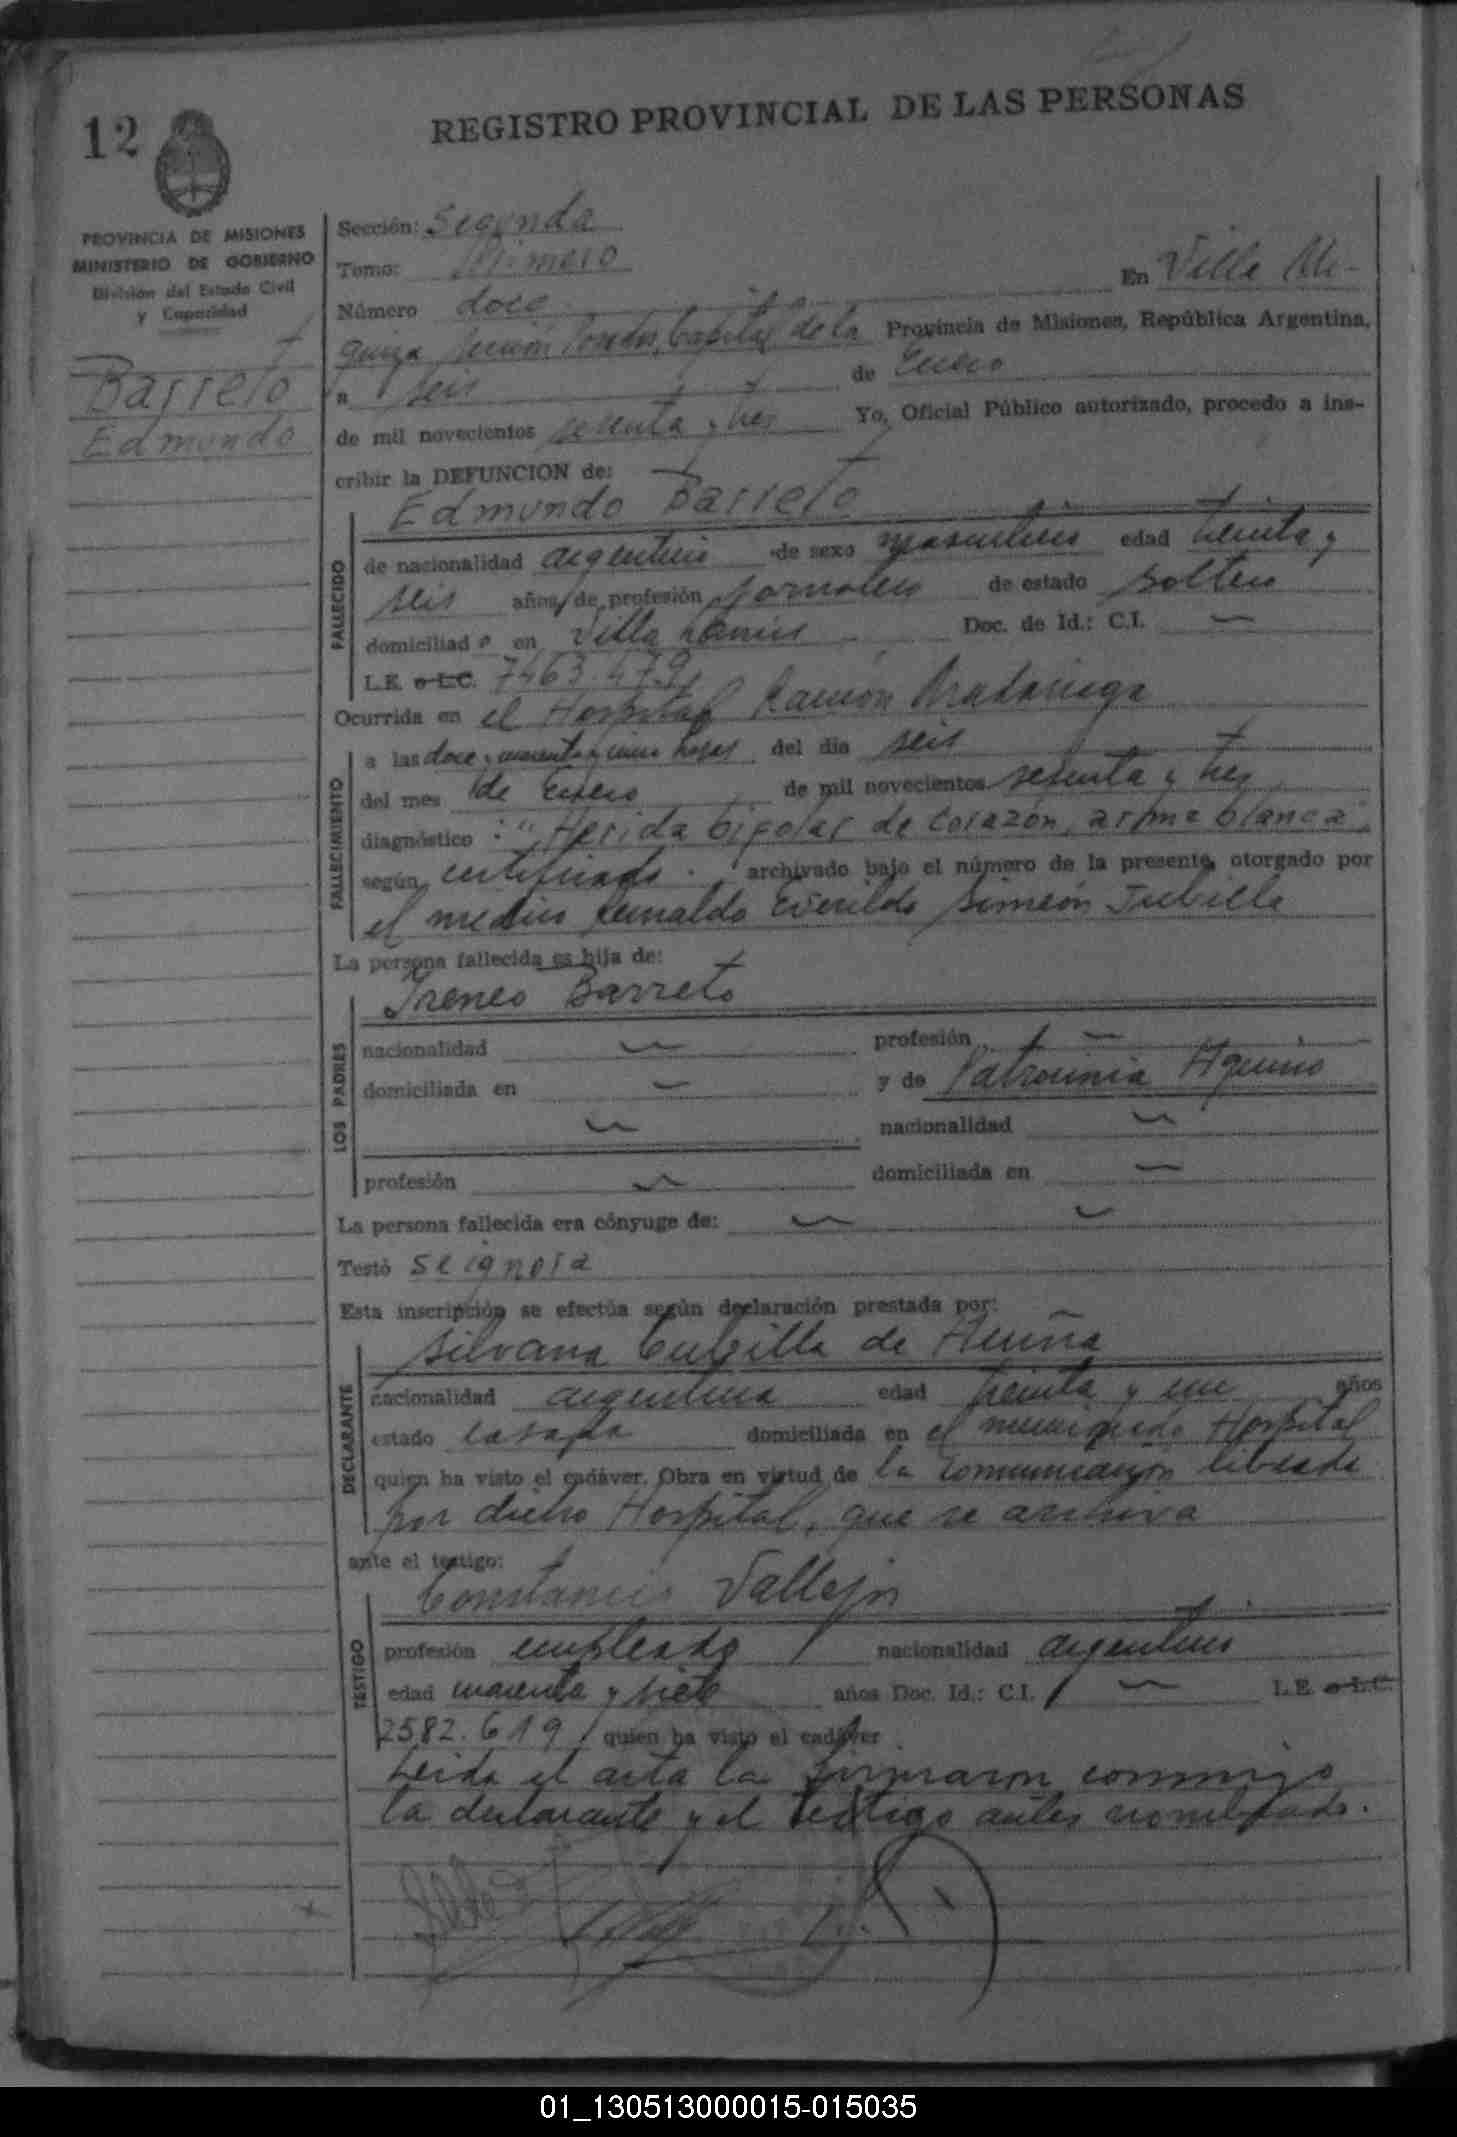 12
REGISTRO PROVINCIAL DE LAS PERSONAS
PROVINCIA DE MISIONES
MINISTERIO DE GOBIERNO
División del Estado Civil
y Capacidad
Barreto
Edmundo
Sección: Segunda
Tomo: Primero
En Villa Ur-
Número doce
quiza Posadas, Capital de la Provincia de Misiones, República Argentina,
a seis de Enero
de mil novecientos setenta y tres Yo, Oficial Público autorizado, procedo a ins-
cribir la DEFUNCION de:
Edmundo Barreto
FALLECIDO
de nacionalidad argentino de sexo masculino edad treinta y
seis años, de profesión jornalero de estado soltero
domiciliado en Villa Lanús Doc. de Id.: C.I. —
L.E. o L.C. 7463.479,
Ocurrida en el Hospital Ramón Madariaga
FALLECIMIENTO
a las doce y cuarenta y cinco horas del día seis
del mes de Enero de mil novecientos setenta y tres
diagnóstico : "Herida bipolar de corazón, arma blanca",
según certificado archivado bajo el número de la presente, otorgado por
el médico Reinaldo Everildo Simeón Jubille
La persona fallecida es hija de:
Ireneo Barreto
LOS PADRES
nacionalidad — profesión —
domiciliada en — y de Patrocinia Aquino
— nacionalidad —
profesión — domiciliada en —
La persona fallecida era cónyuge de: — —
Testó se ignora
Esta inscripción se efectúa según declaración prestada por:
Silvana Cubilla de
DECLARANTE
nacionalidad argentina edad treinta y un años
estado casada domiciliada en el mencionado Hospital
quien ha visto el cadáver. Obra en virtud de la comunicación librada
por dicho Hospital, que se archiva
ante el testigo:
Constancio Vallejos
TESTIGO
profesión empleado nacionalidad argentino
edad cuarenta y siete años Doc. Id.: C.I. — L.E. o L.C.
2582.619, quien ha visto el cadáver.
Leída el acta la firmaron conmigo
la declarante y el testigo antes nombrado.
01_130513000015-015035